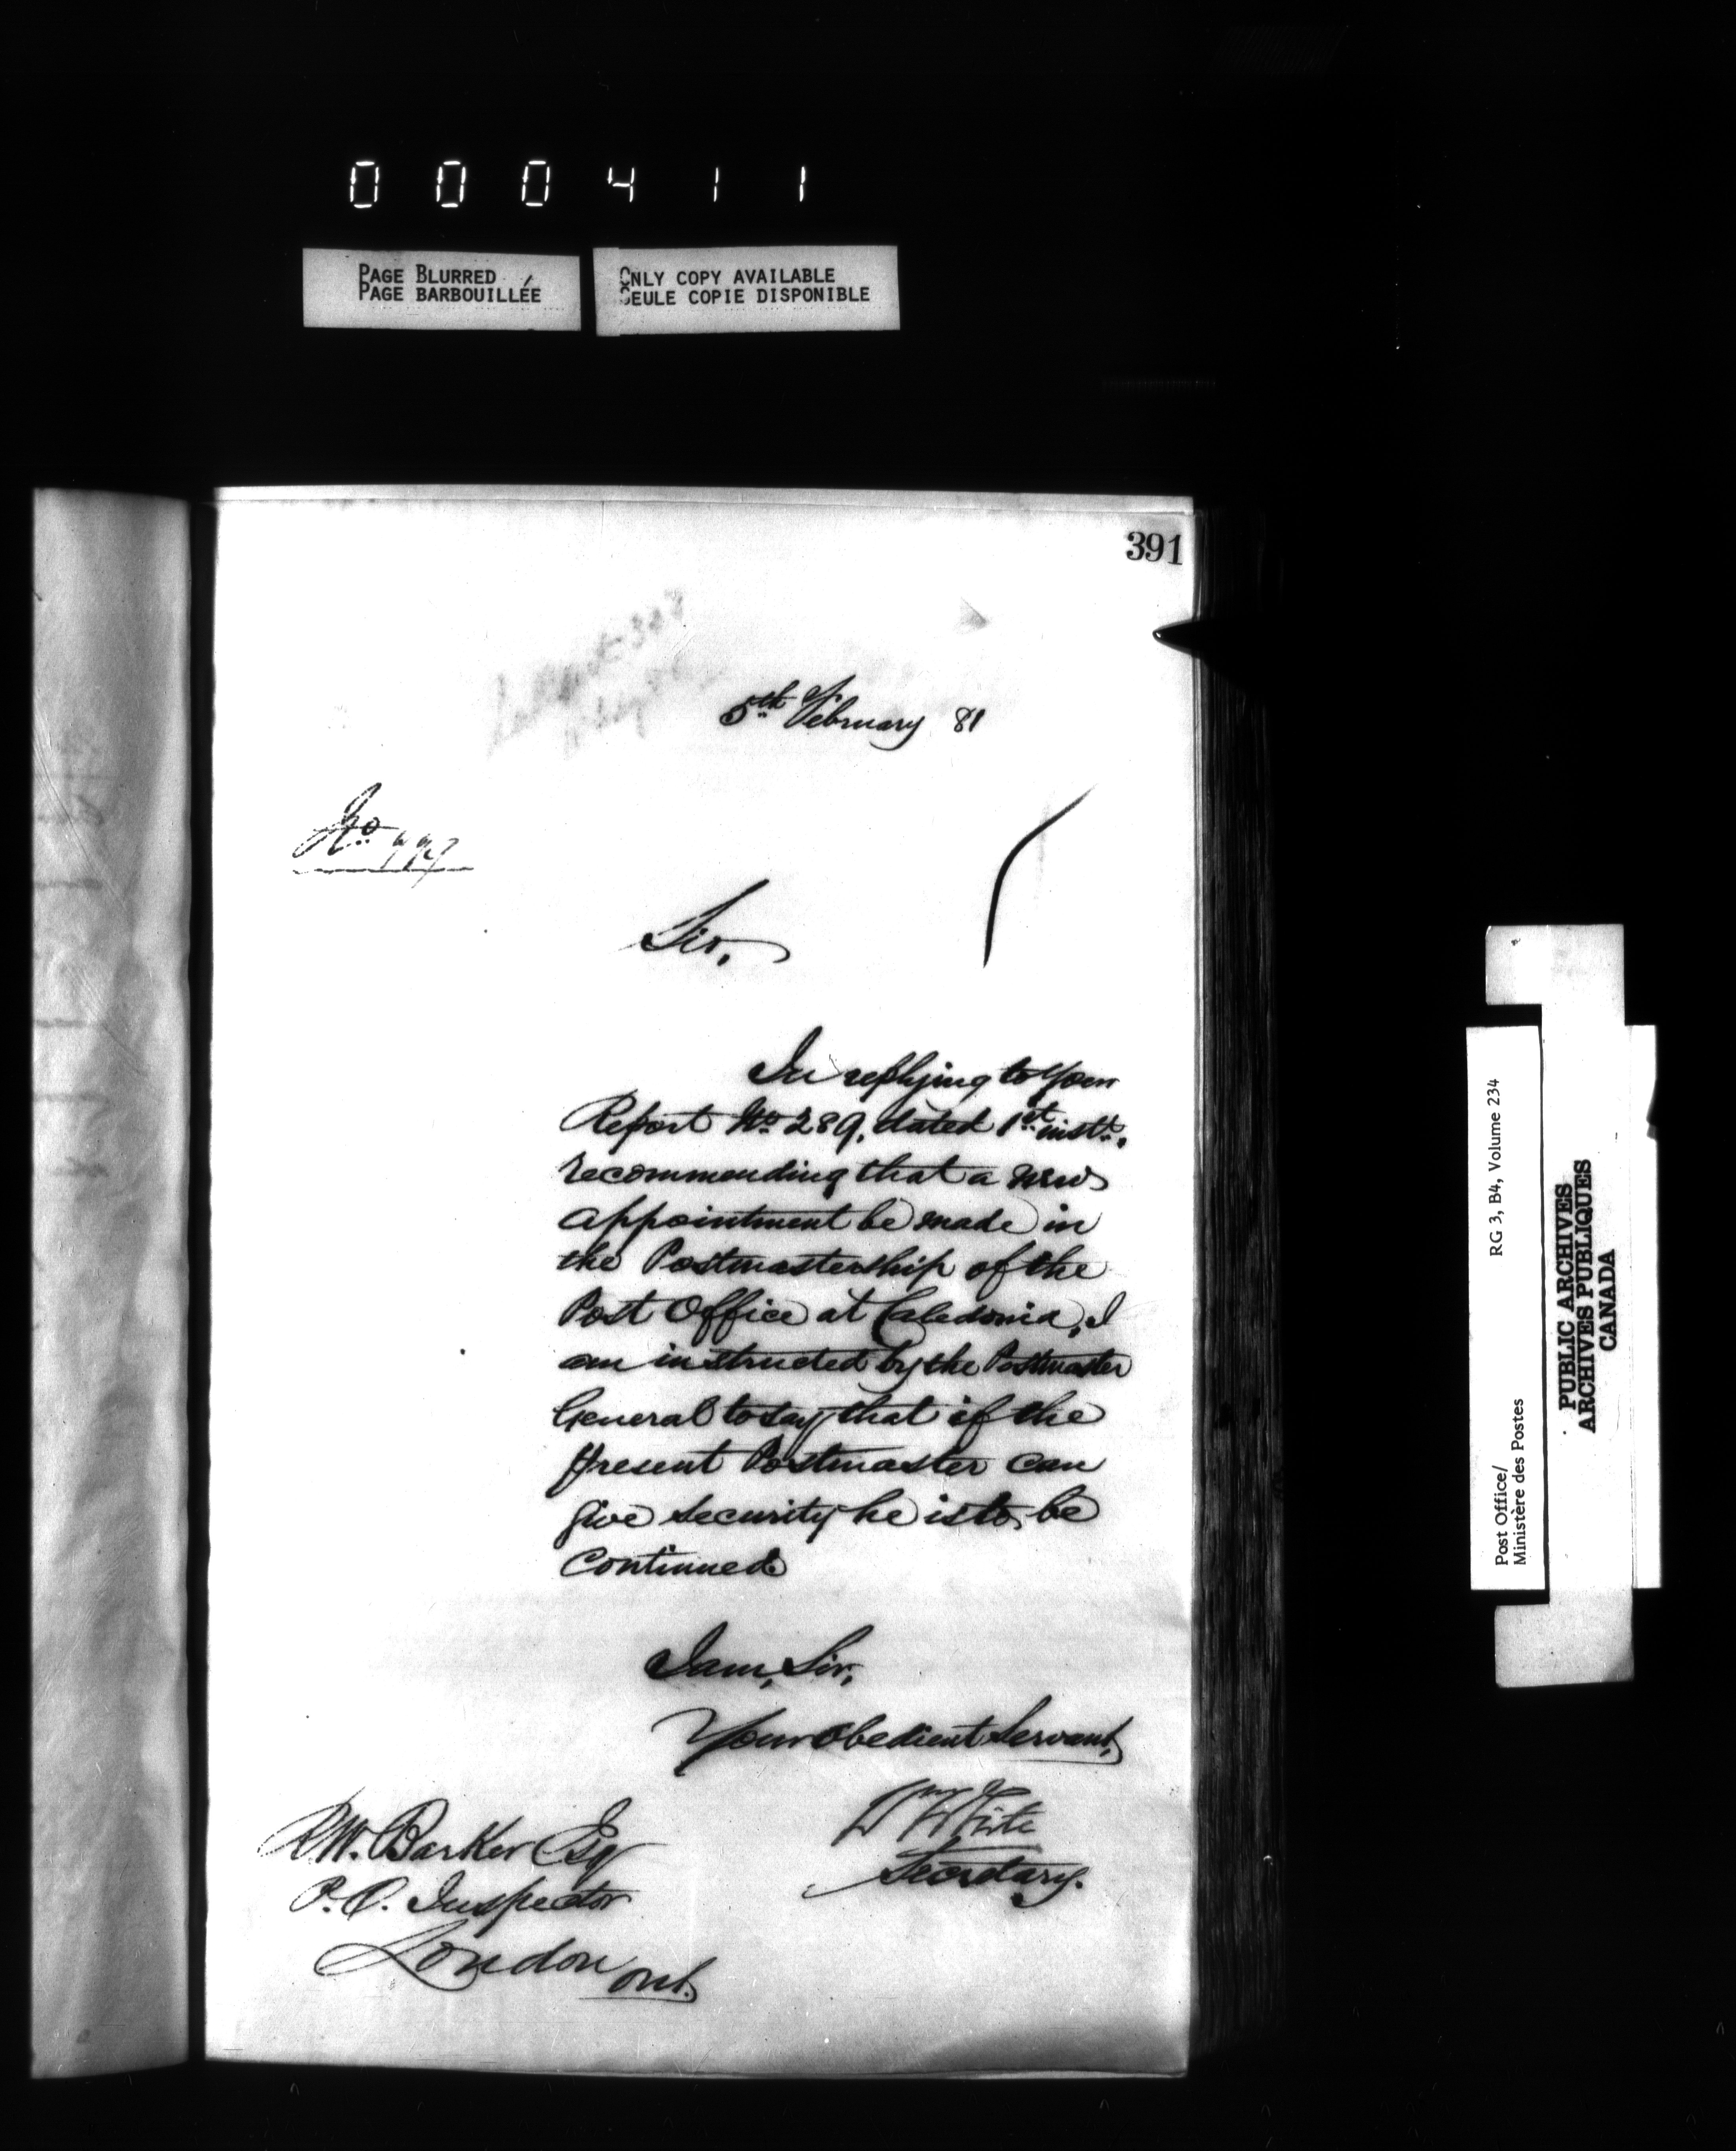 000411
PAGE BLURRED
PAGE BARBOUILLÉE
ONLY COPY AVAILABLE
SEULE COPIE DISPONIBLE
391
5th February 81
No
Sir,
In replying to your
Report No. 289, dated 1st inst.,
recommending that a new
appointment be made in
the Postmastership of the
Post Office at Caledonia, I
am instructed by the Postmaster
General to say that if the
present Postmaster can
give security he is to be
Continued
I am, Sir,
Your obedient Servant,
Wm White
Secretary.
R.W. Barker Esq
P.O. Inspector
London Ont.
Post Office/
Ministère des Postes
RG 3, B4, Volume 234
PUBLIC ARCHIVES
ARCHIVES PUBLIQUES
CANADA